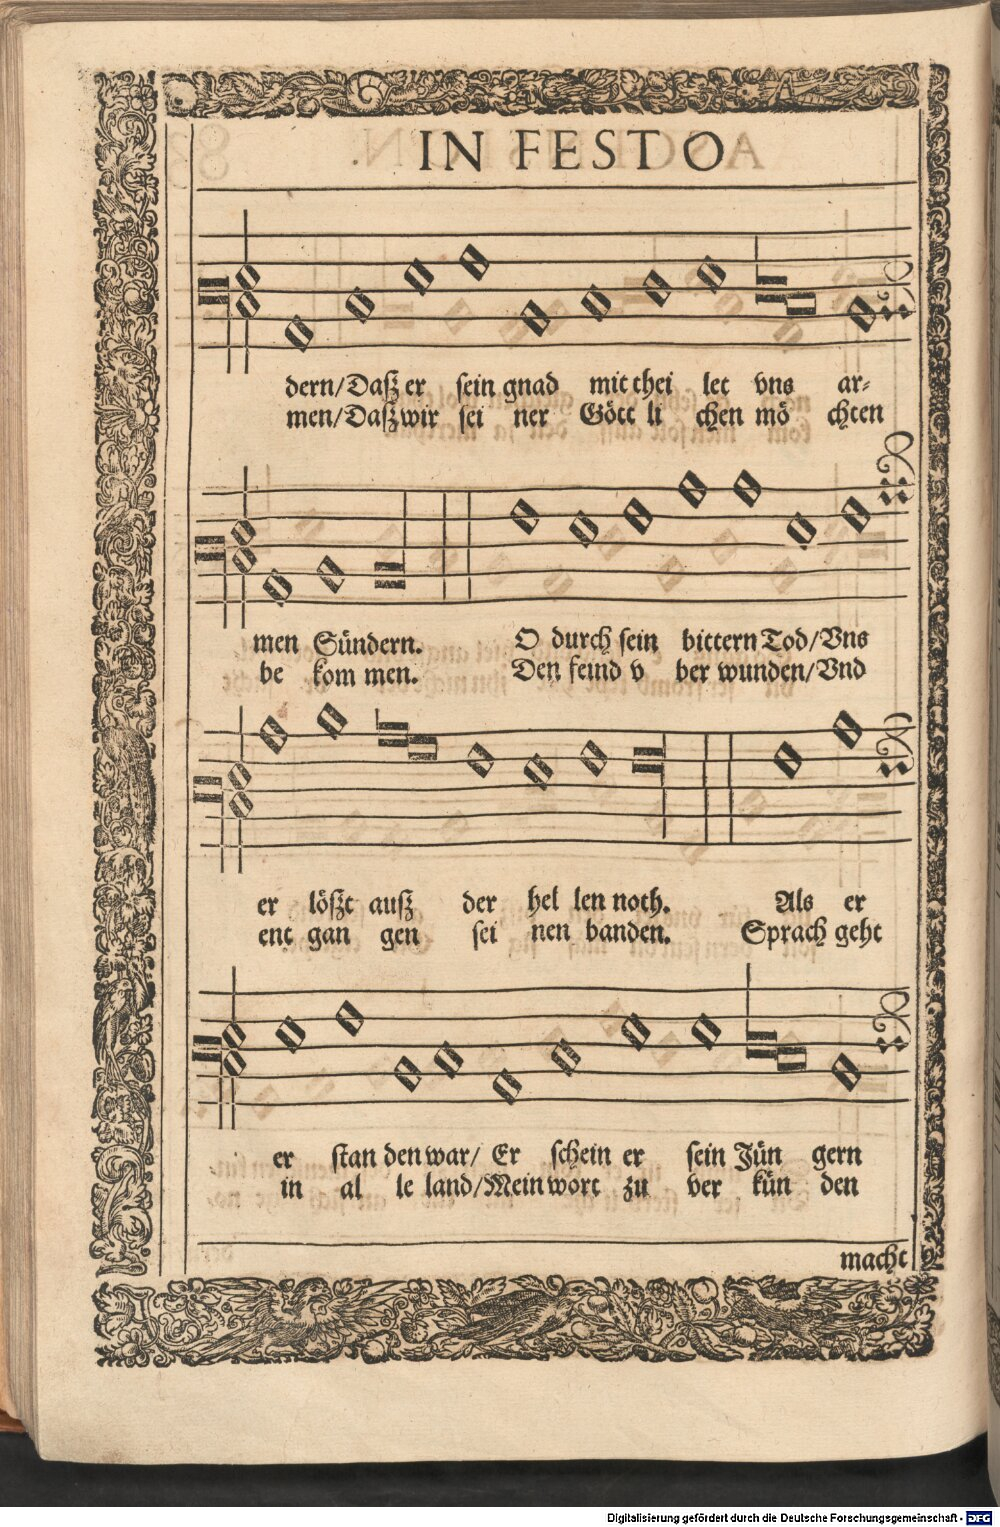 IN FESTO
dern/Daſz er ſein gnad mit thei let vns ar⸗
men/Daſz wir ſei ner Gött li chen mö chten
men Sündern. O durch ſein bittern Tod/Vns
be kom men. Den feind v ber wunden/Vnd
er löſzt auſz der hel len noth. Als er
ent gan gen ſei nen banden. Sprach geht
er ſtan den war/ Er ſchein er ſein Jün gern
in al le land/Mein wort zu ver kün den
macht
Digitalisierung gefördert durch die Deutsche Forschungsgemeinschaft - DFG